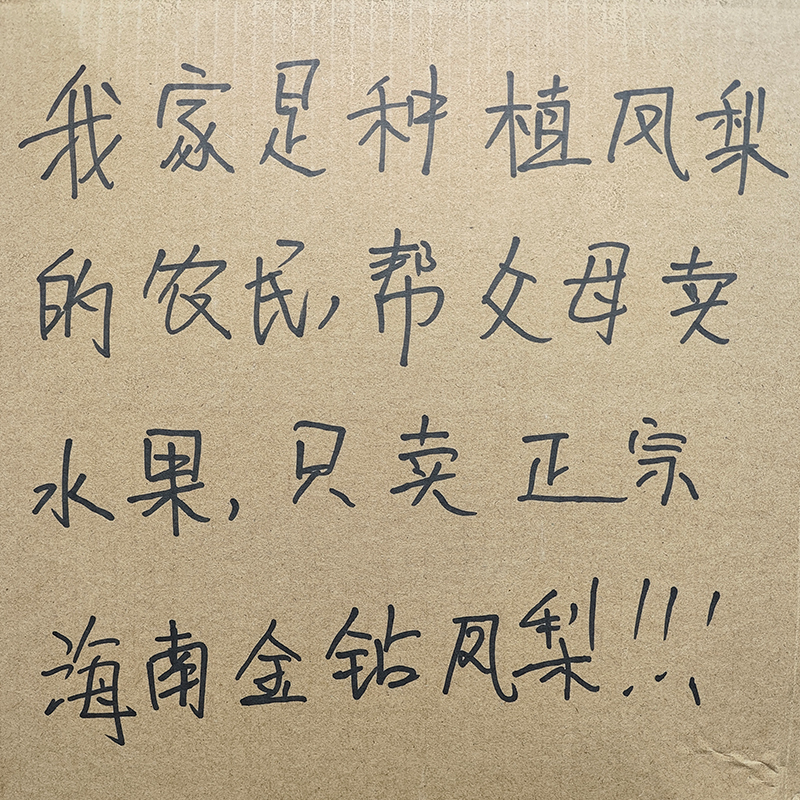 我家是种植凤梨
的农民,帮父母卖
水果,只卖正宗
海南金钻凤梨!!!